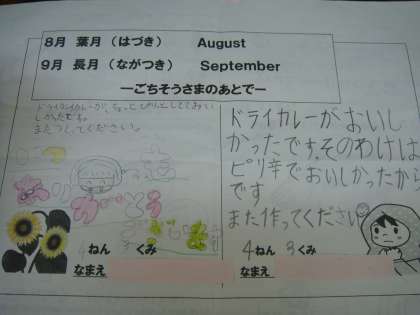 8月 葉月（はづき） August
9月 長月（ながつき） September
ーごちそうさまのあとでー
ドライカレーが、ちょっとぴりっとしてておい
しかったです。
またつくってください。
ありがとう
4ねん くみ
なまえ
ドライカレーがおいし
かったです。そのわけは
ピリ辛でおいしかったから
です
また作ってください
4ねん 3くみ
なまえ